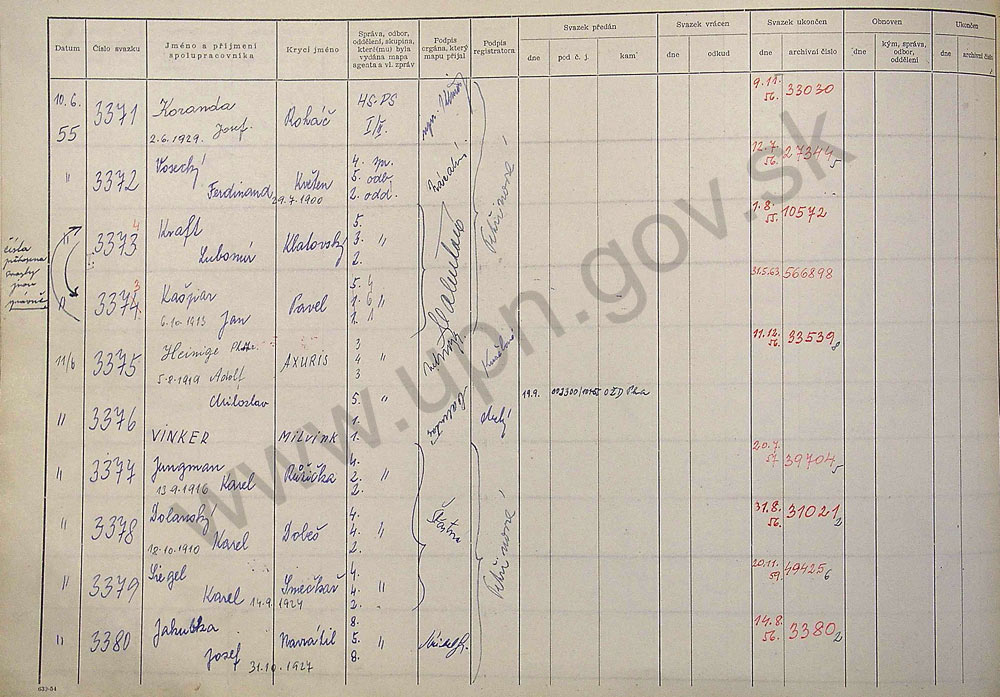 Datum
Číslo svazku
Jméno a příjmení spolupracovníka
Krycí jméno
Správa, odbor, oddělení, skupina, které(mu) byla vydána mapa agenta a vl. zpráv
Podpis orgána, který mapu přijal
Podpis registratora
Svazek předán
dne
pod č. j.
kam
Svazek vrácen
dne
odkud
Svazek ukončen
dne
archivní číslo
Obnoven
dne
kým, správa, odbor, oddělení
Ukončen
dne
archivní číslo
10.6. 55 3371 Koranda Josef 2.6.1929 Roháč HS-PS 9.11. 56. 33030
" 3372 Vosecký Ferdinand Květen 29.7.1900 4. 5. odb. 2. odd. 12.7. 56. 27344 5
3373 4 Kraft Lubomír Klatovský 5. 3. " 2. 1.8. 55. 10572
čísla
3374 3 Kašpar Jan 6.10.1913 Pavel 31.5.63 566898
11/6 3375 Heinige Adolf 5.8.1919 AXURIS 3 4 " 3 11.12. 56. 33539 8
" 3376 Miloslav VINKER MILVINK 5. " 1. 1. 19.9.
" 3377 Jungman Karel 13.9.1916 Růžička 4. 2. " 2. 20.7. 57. 39704 5
" 3378 Dolanský Karel 18.10.1910 Doleš 4. 4. " 2. Šťastný 31.8. 56. 31021 2
" 3379 Siegel Karel 14.9.1924 Smečkař 4. 4. " 2. 20.11. 59. 49425 6
" 3380 Jakubka Josef 31.10.1927 Navrátil 8. 5. " 8. 14.8. 56. 3380 2
633-54
www.upn.gov.sk